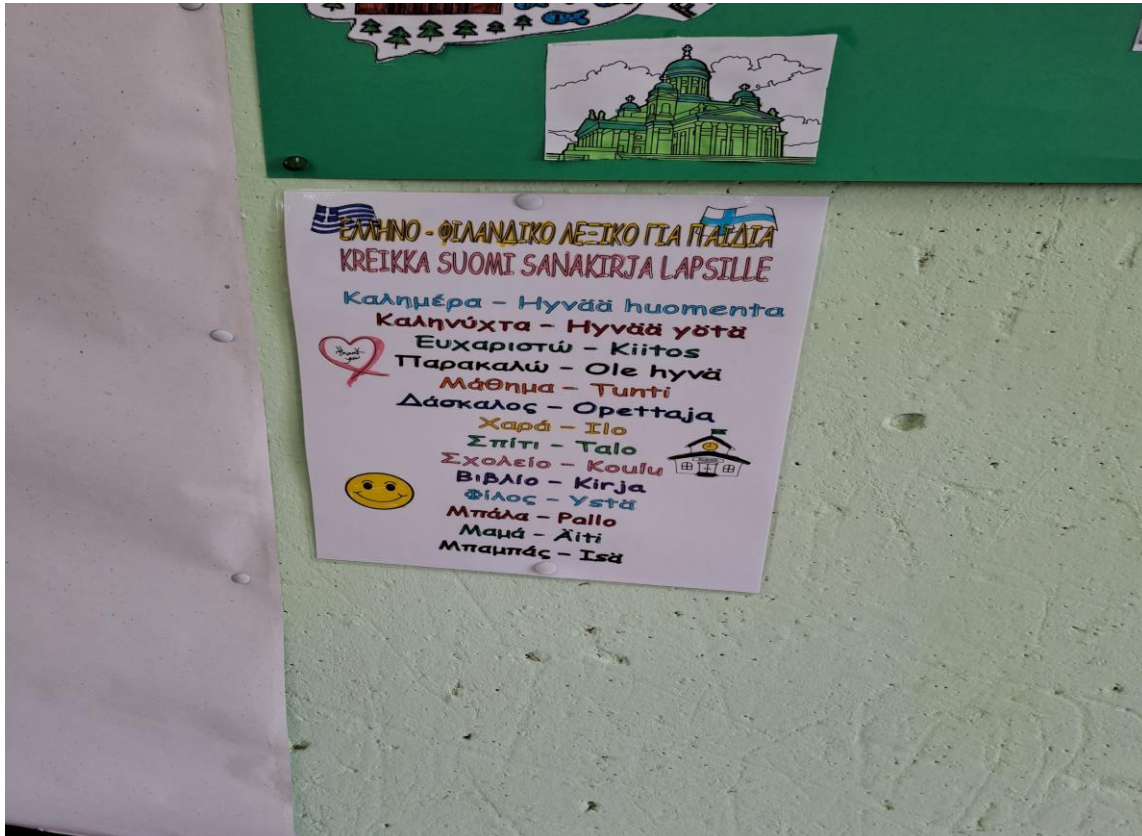 ΕΛΛΗΝΟ - ΦΙΛΑΝΔΙΚΟ ΛΕΞΙΚΟ ΓΙΑ ΠΑΙΔΙΑ
KREIKKA SUOMI SANAKIRJA LAPSILLE
Καλημέρα - Hyvää huomenta
Καληνύχτα - Hyvää yötä
Ευχαριστώ - Kiitos
Παρακαλώ - Ole hyvä
Μάθημα - Tunti
Δάσκαλος - Opettaja
Χαρά - Ilo
Σπίτι - Talo
Σχολείο - Koulu
Βιβλίο - Kirja
Φίλος - Ystä
Μπάλα - Pallo
Μαμά - Äiti
Μπαμπάς - Isä
thank you